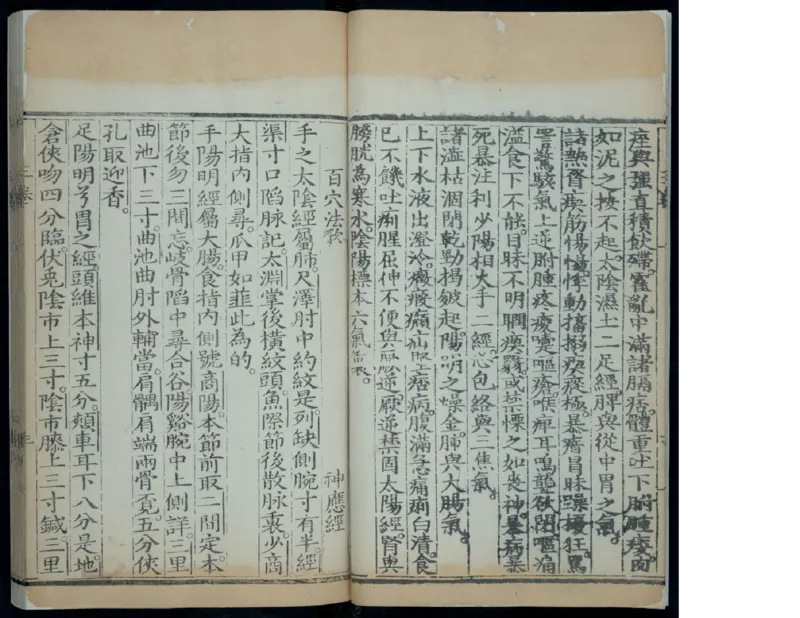 痓與強直積飲滯霍亂中滿諸膈痞體重吐下胕腫痿肉
如泥之按不起太陰濕土二足經脾與從中胃之氣
諸熱瞀瘈筋惕悸動搐搦瘛瘲極暴瘖冒昧躁擾狂罵
詈驚駭氣上逆胕腫疼痠嚏嘔瘡喉痺耳鳴聾欲嘔痛
溢食下不能目昧不明瞤瘛或禁慄之如喪神暴病暴
死暴注利少陽相火手二經心包絡與三焦氣
諸澁枯涸閉乾勁揭皴起陽明之燥金肺與大腸氣
上下水液出澄冷癥瘕㿗疝堅痞病腹滿急痛痢白清食
已不饑吐痢腥屈伸不便與厥逆厥逆禁固太陽經腎與
膀胱為寒水陰陽標本六氣裏
百穴法歌 神應經
手之太陰經屬肺尺澤肘中約紋是列缺側腕寸有半經
渠寸口陷脉記太淵掌後橫紋頭魚際節後散脉裏少商
大指內側尋爪甲如韭此為的
手陽明經屬大腸食指內側號商陽本節前取二間定本
節後勿三間忘岐骨陷中尋合谷陽谿腕中上側詳三里
曲池下三寸曲池曲肘外輔當肩髃肩端兩骨覓五分俠
孔取迎香
足陽明兮胃之經頭維本神寸五分頰車耳下八分是地
倉俠吻四分臨伏兎陰市上三寸陰市膝上三寸鍼三里